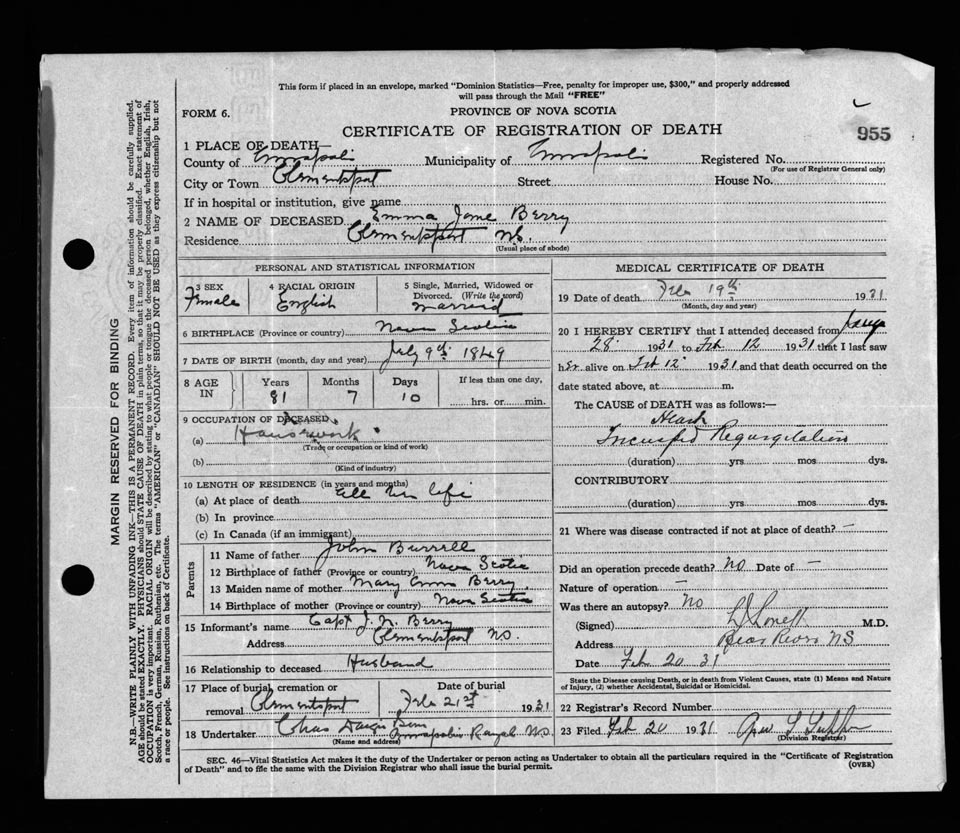 This form if placed in an envelope, marked "Dominion Statistics—Free, penalty for improper use, $300," and properly addressed
will pass through the Mail "FREE"
FORM 6.
PROVINCE OF NOVA SCOTIA
CERTIFICATE OF REGISTRATION OF DEATH
955
1 PLACE OF DEATH—
County of Annapolis Municipality of Annapolis Registered No.
(For use of Registrar General only)
City or Town Clementsport Street House No.
If in hospital or institution, give name
2 NAME OF DECEASED Emma Jane Berry
Residence Clementsport N.S.
(Usual place of abode)
PERSONAL AND STATISTICAL INFORMATION
3 SEX Female
4 RACIAL ORIGIN English
5 Single, Married, Widowed or
Divorced. (Write the word)
Married
6 BIRTHPLACE (Province or country) Nova Scotia
7 DATE OF BIRTH (month, day and year) July 9th 1849
8 AGE IN
Years Months Days If less than one day,
81 7 10 hrs. or min.
9 OCCUPATION OF DECEASED
(a) Housework
(Trade or occupation or kind of work)
(b)
(Kind of industry)
10 LENGTH OF RESIDENCE (in years and months)
(a) At place of death all her life
(b) In province
(c) In Canada (if an immigrant)
Parents
11 Name of father John Burrell
12 Birthplace of father (Province or country) Nova Scotia
13 Maiden name of mother Mary Berry
14 Birthplace of mother (Province or country) Nova Scotia
15 Informant's name Capt J. N. Berry
Address Clementsport N.S.
16 Relationship to deceased Husband
17 Place of burial, cremation or Date of burial
removal Clementsport Feb 21st 1931
18 Undertaker Chas
(Name and address) Annapolis Royal N.S.
MEDICAL CERTIFICATE OF DEATH
19 Date of death Feb 19th 1931
(Month, day and year)
20 I HEREBY CERTIFY that I attended deceased from
28 1931 to Feb 12 1931 that I last saw
her alive on Feb 12 1931 and that death occurred on the
date stated above, at m.
The CAUSE of DEATH was as follows:
Heart
Regurgitation
(duration) yrs mos dys.
CONTRIBUTORY
(duration) yrs. mos. dys.
21 Where was disease contracted if not at place of death? —
Did an operation precede death? No Date of —
Nature of operation —
Was there an autopsy? No
(Signed) M.D.
Address Bear River NS
Date Feb 20 31
State the Disease causing Death, or in death from Violent Causes, state (1) Means and Nature
of Injury, (2) whether Accidental, Suicidal or Homicidal.
22 Registrar's Record Number
23 Filed Feb 20 1931
(Division Registrar)
SEC. 46—Vital Statistics Act makes it the duty of the Undertaker or person acting as Undertaker to obtain all the particulars required in the "Certificate of Registration
of Death" and to file the same with the Division Registrar who shall issue the burial permit.
(OVER)
MARGIN RESERVED FOR BINDING
N.B.—WRITE PLAINLY WITH UNFADING INK—THIS IS A PERMANENT RECORD. Every item of information should be carefully supplied.
AGE should be stated EXACTLY. PHYSICIANS should STATE CAUSE OF DEATH in plain terms, so that it may be properly classified. Exact statement of
OCCUPATION is very important. RACIAL ORIGIN will be described by stating to what people or tongue the deceased person belonged, whether English, Irish,
Scotch, French, German, Russian, Ruthenian, etc. The terms "AMERICAN" or "CANADIAN" SHOULD NOT BE USED as they express citizenship but not
a race or people. See instructions on back of Certificate.